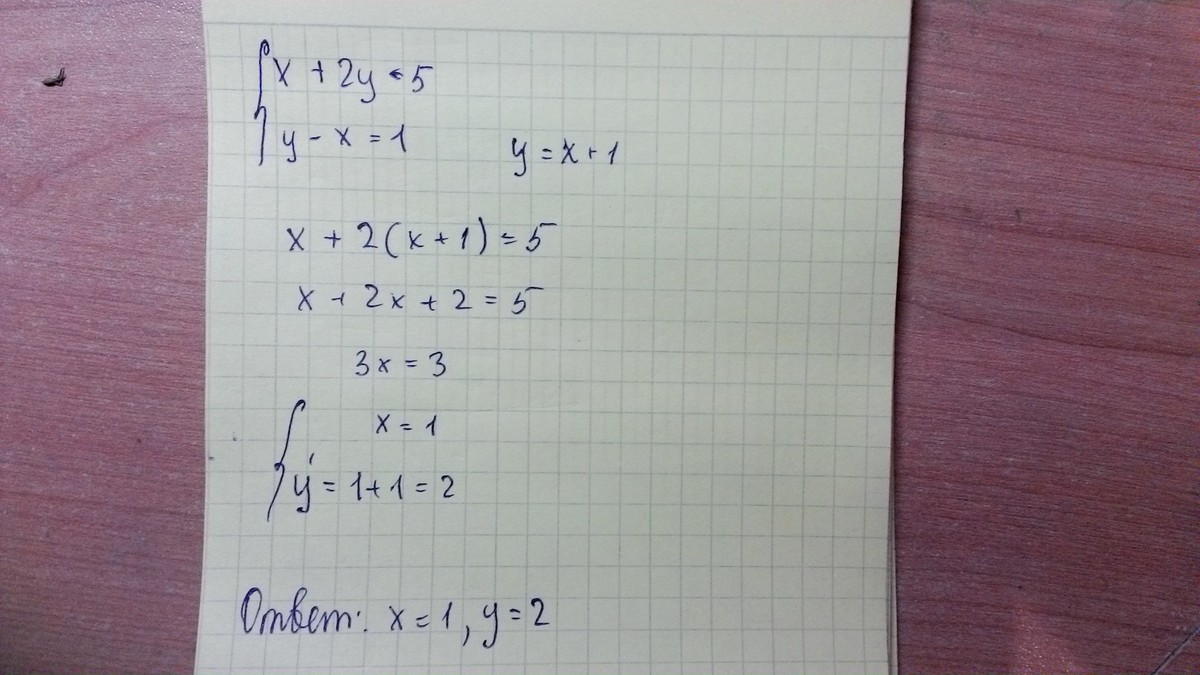 x + 2y = 5
y - x = 1
y = x + 1
x + 2(x + 1) = 5
x + 2x + 2 = 5
3x = 3
x = 1
y = 1 + 1 = 2
Ответ: x = 1, y = 2